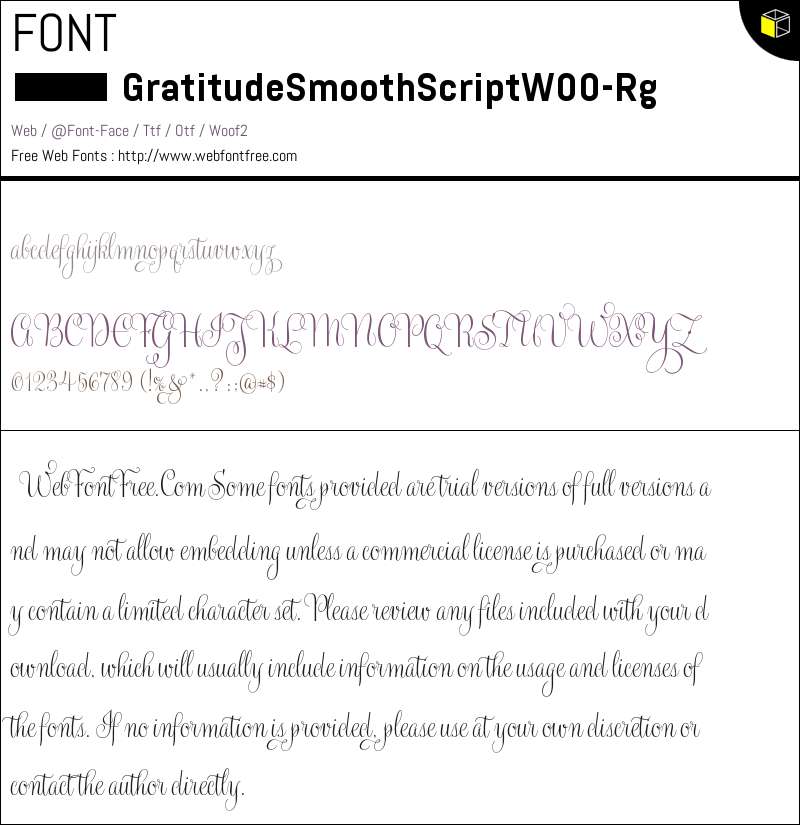 FONT
GratitudeSmoothScriptW00-Rg
Web / @Font-Face / Ttf / Otf / Woof2
Free Web Fonts : http://www.webfontfree.com
abcdefghijklmnopqrstuvwxyz
ABCDEFGHIJKLMNOPQRSTUVWXYZ
0123456789 (!%&*.,?:;@#$)
WebFontFree.Com Some fonts provided are trial versions of full versions a
nd may not allow embedding unless a commercial license is purchased or ma
y contain a limited character set. Please review any files included with your d
ownload, which will usually include information on the usage and licenses of
the fonts. If no information is provided, please use at your own discretion or
contact the author directly.